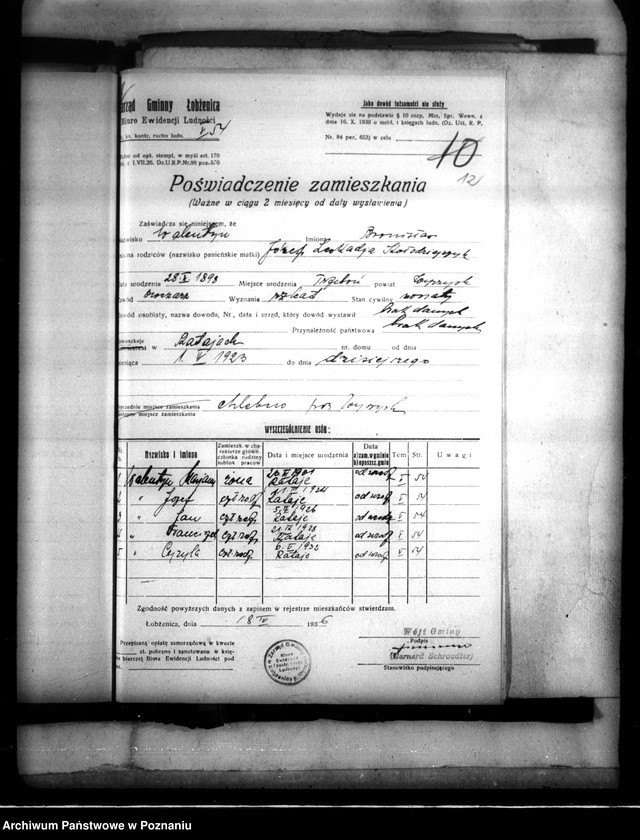 Zarząd Gminny Łobżenica
Biuro Ewidencji Ludności
kontr. ruchu ludn. 54
od opł. stempl. w myśl art. 170
z 1.VII.26. Dz.U.R.P.Nr.98 poz.570
Jako dowód tożsamości nie służy
Wydaje się na podstawie § 10 rozp. Min. Spr. Wewn. z
dnia 16. X. 1930 o meld. i księgach ludn. (Dz. Ust. R. P.
Nr. 84 per. 653) w celu
10
12
Poświadczenie zamieszkania
(Ważne w ciągu 2 miesięcy od daty wystawienia)
Zaświadcza się niniejszem, że
Nazwisko Walentyn Imiona Bronisław
Imiona rodziców (nazwisko panieńskie matki) Józef Leokadja
Data urodzenia 28 X 1898 Miejsce urodzenia Trzeboń powiat Wyrzysk
Zawód Wyznanie rzkat Stan cywilny żonaty
Dowód osobisty, nazwa dowodu, Nr., data i urząd, który dowód wystawił brak danych
Przynależność państwowa brak danych
w Ratajach nr. domu od dnia
miesiąca 1. V 1923 do dnia dzisiejszego
Poprzednie miejsce zamieszkania
miejsce zamieszkania
pow. Wyrzysk
WYSZCZEGÓLNIENIE OSÓB:
Nazwisko i imię Zamieszk. w charakterze główn. członka rodziny sublok. pracow. Data i miejsce urodzenia Data a) zam. w gminie b) opuszcz. gminę Tom Str. Uwagi
Walentyn Marjanna żona 1901 Rataje od urodz I 54
2 " Józef czł rodz Rataje od urodz I 54
3 " Jan czł rodz 1926 Rataje od urodz I 54
4 " czł rodz 1928 Rataje od urodz I 54
5 " Cyryla czł rodz 6. V 1932 Rataje od urodz I 54
Zgodność powyższych danych z zapisem w rejestrze mieszkańców stwierdzam.
Łobżenica, dnia 18 IV 1936
Przepisaną opłatę samorządową w kwocie
zł. pobrano i zanotowano w księdze
bierczej Biura Ewidencji Ludności pod
Wójt Gminy
Podpis
(Bernard Schroedter)
Stanowisko podpisującego
Archiwum Państwowe w Poznaniu